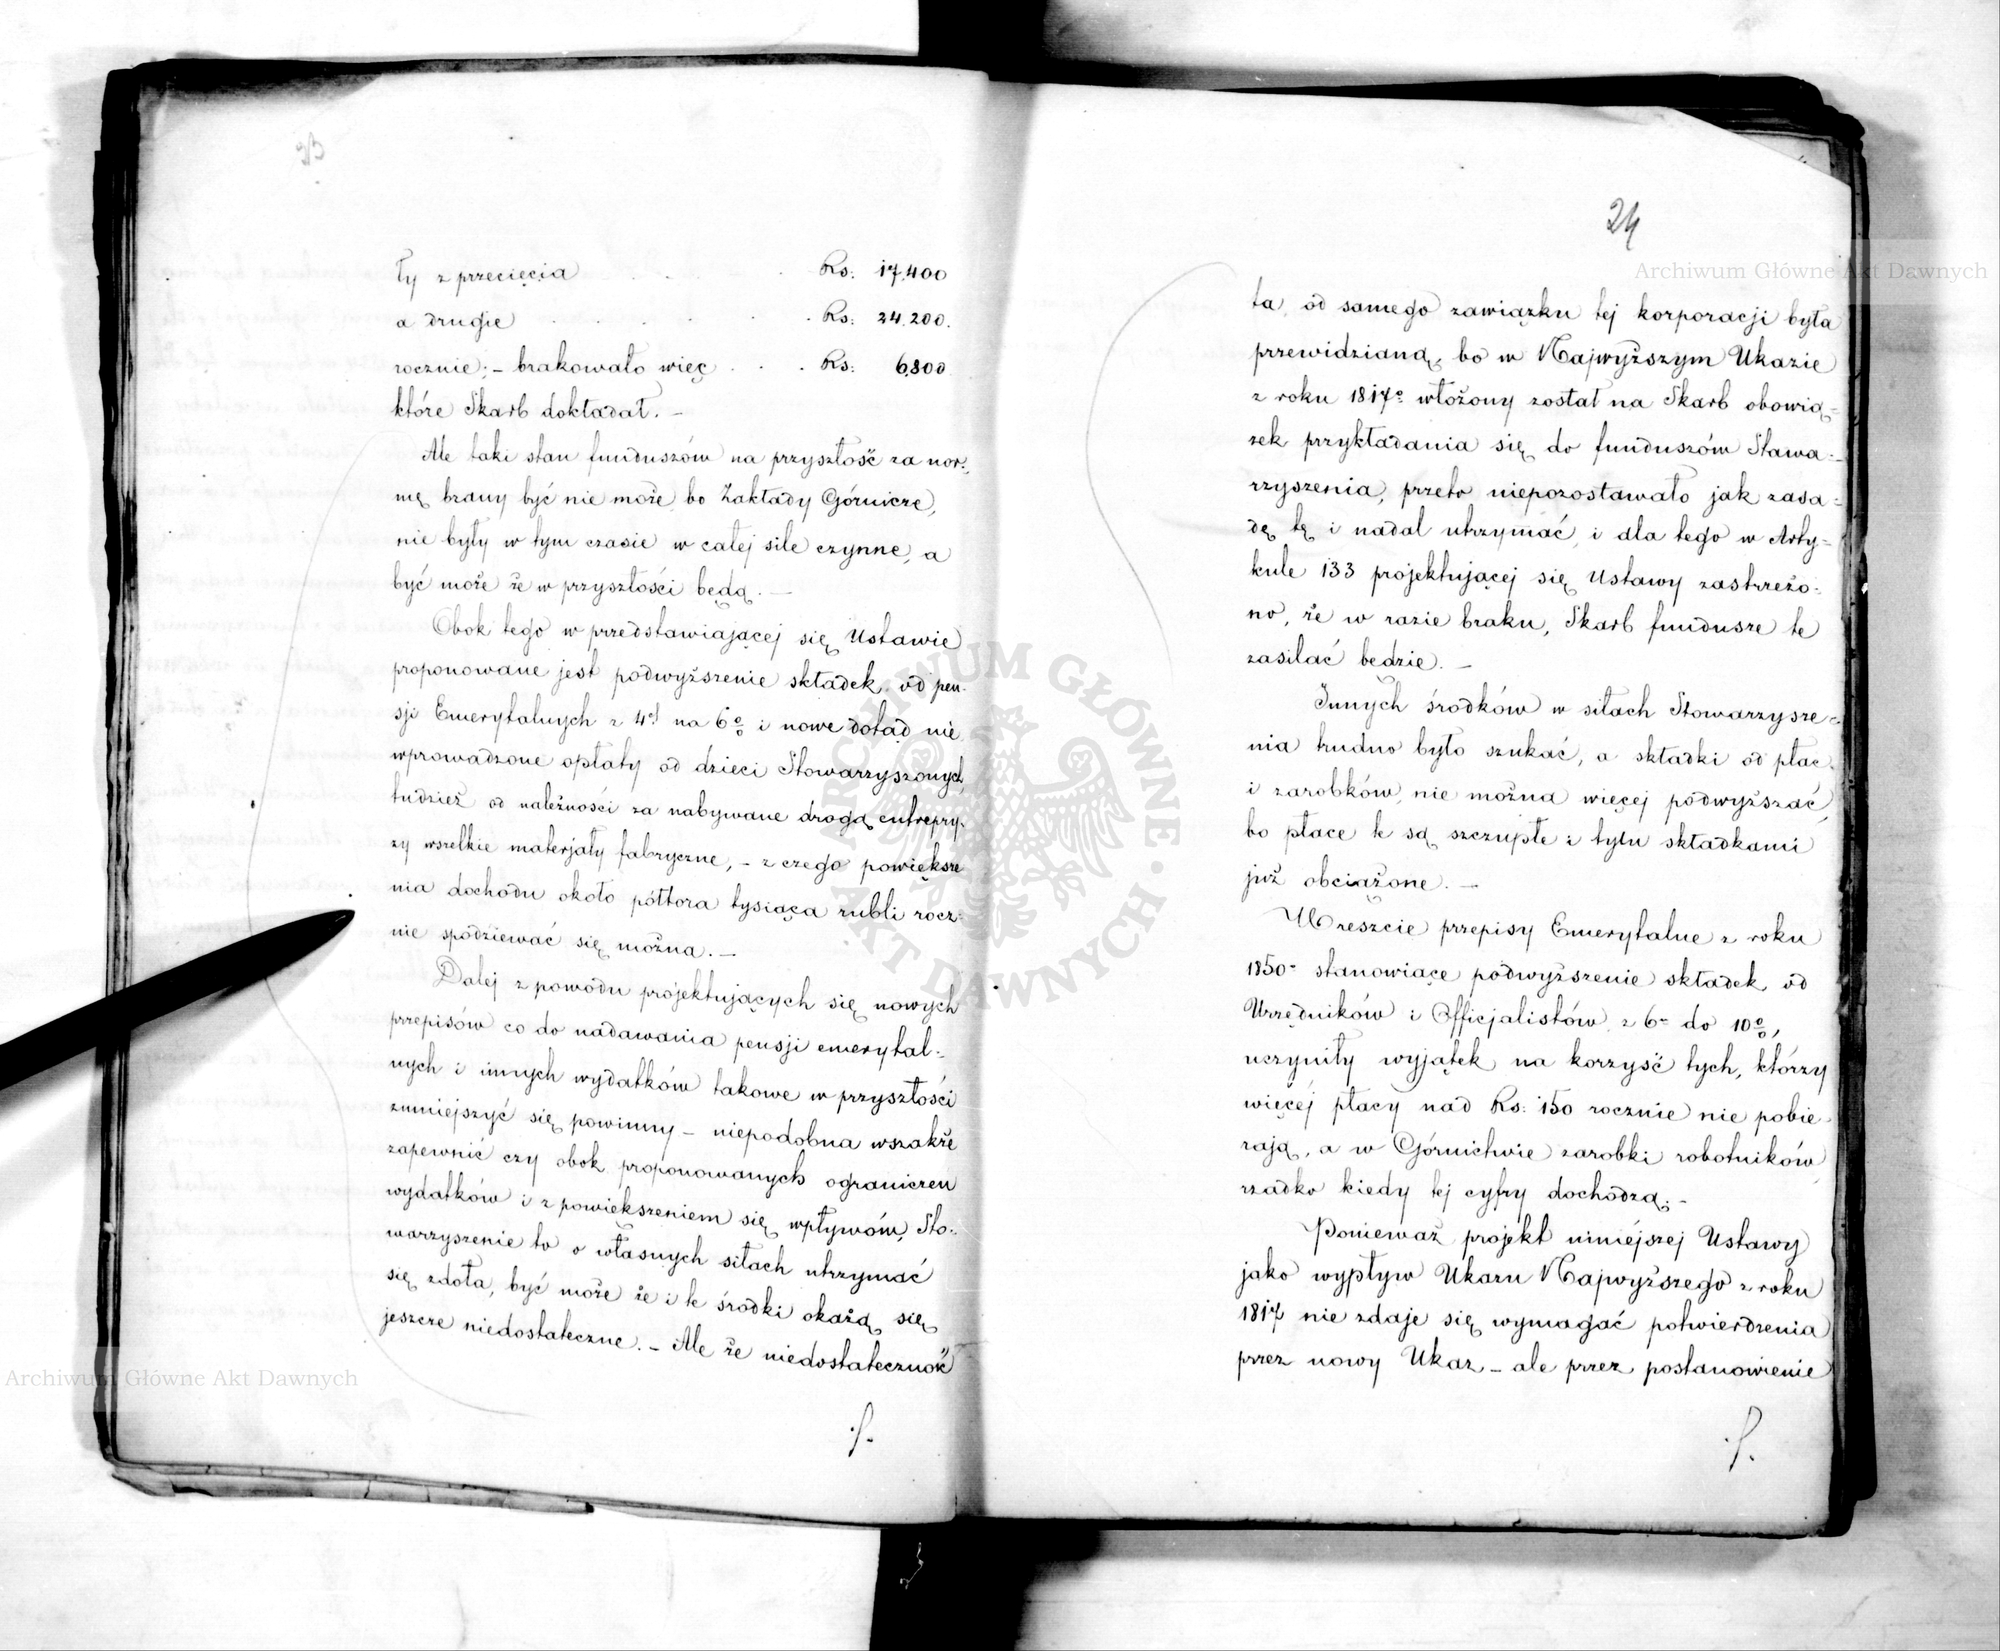 ły z przecięcia . . . . Rs: 17,400
a drugie . . . . . . Rs: 24.200.
rocznie; – brakowało więc . . . Rs: 6,800
które Skarb dokładał. –
Ale taki stan funduszów na przyszłość za nor=
mę brany być nie może, bo Zakłady Górnicze,
nie były w tym czasie w całej sile czynne, a
być może że w przyszłości będą. –
Obok tego w przedstawiającej się Ustawie
proponowane jest podwyższenie składek, od pen-
sji Emerytalnych z 4% na 6% i nowe dotąd nie
wprowadzone opłaty od dzieci Stowarzyszonych,
tudzież od należności za nabywane drogą entrepry-
zy wszelkie materjały fabryczne, – z czego powiększe
nia dochodu około półtora tysiąca rubli rocz=
nie spodziewać się można. –
Dalej z powodu projektujących się nowych
przepisów co do nadawania pensji emerytal=
nych i innych wydatków takowe w przyszłości
zmniejszyć się powinny – niepodobna wszakże
zapewnić czy obok proponowanych ograniczeń
wydatków i z powiększeniem się wpływów, Sto=
warzyszenie to o własnych siłach utrzymać
się zdoła, być może że i te środki okażą się
jeszcze niedostateczne. – Ale że niedostateczność
24
ta, od samego zawiązku tej korporacji była
przewidzianą, bo w Najwyższym Ukazie
z roku 1817o włożony został na Skarb obowią=
zek przykładania się do funduszów Stowa=
rzyszenia, przeto niepozostawało jak zasa=
dę tę i nadal utrzymać, i dla tego w Arty=
kule 133 projektującej się Ustawy zastrzeżo=
no, że w razie braku, Skarb fundusze te
zasilać będzie. –
Innych środków w siłach Stowarzysze=
nia trudno było szukać, a składki od płac
i zarobków, nie można więcej podwyższać,
bo płace te są szczupłe i tylu składkami
już obciążone. –
Wreszcie przepisy Emerytalne z roku
1850 stanowiące podwyższenie składek, od
Urzędników i Officjalistów, z 6 do 10%,
uczyniły wyjątek na korzyść tych, którzy
więcej płacy nad Rs: 150 rocznie nie pobie=
rają, a w Górnictwie zarobki robotników
rzadko kiedy tej cyfry dochodzą. –
Ponieważ projekt niniejszej Ustawy
jako wypływ Ukazu Najwyższego z roku
1817 nie zdaje się wymagać potwierdzenia
przez nowy Ukaz – ale przez postanowienie
Archiwum Główne Akt Dawnych
Archiwum Główne Akt Dawnych
ARCHIWUM GŁÓWNE · AKT DAWNYCH ·